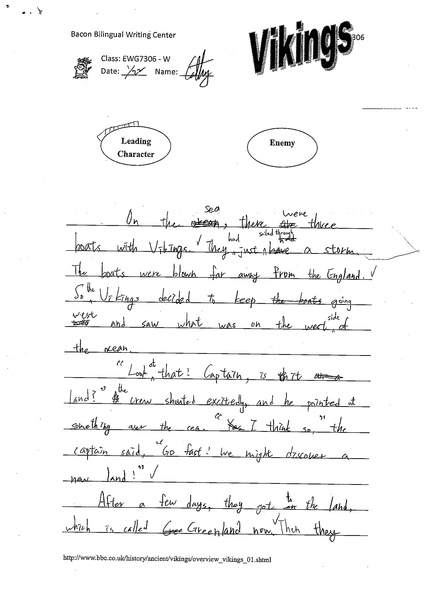 Bacon Bilingual Writing Center
Vikings 306
Class: EWG7306 - W
Date: 1/22 Name: Cathy
Leading
Character
Enemy
sea were
On the ocean, there are three
had sailed through
boats with Vikings. They just have a storm.
The boats were blown far away from the England.
the
So Vikings decided to keep the boats going
west side
and saw what was on the west of
the ocean.
at
"Look that! Captain, is it
the
land?" crew shouted excitedly, and he pointed at
something over the cea. "Yes I think so," the
captain said, "Go fast! We might discover a
new land!"
to
After a few days, they got the land,
which is called Greenland now. Then they
http://www.bbc.co.uk/history/ancient/vikings/overview_vikings_01.shtml